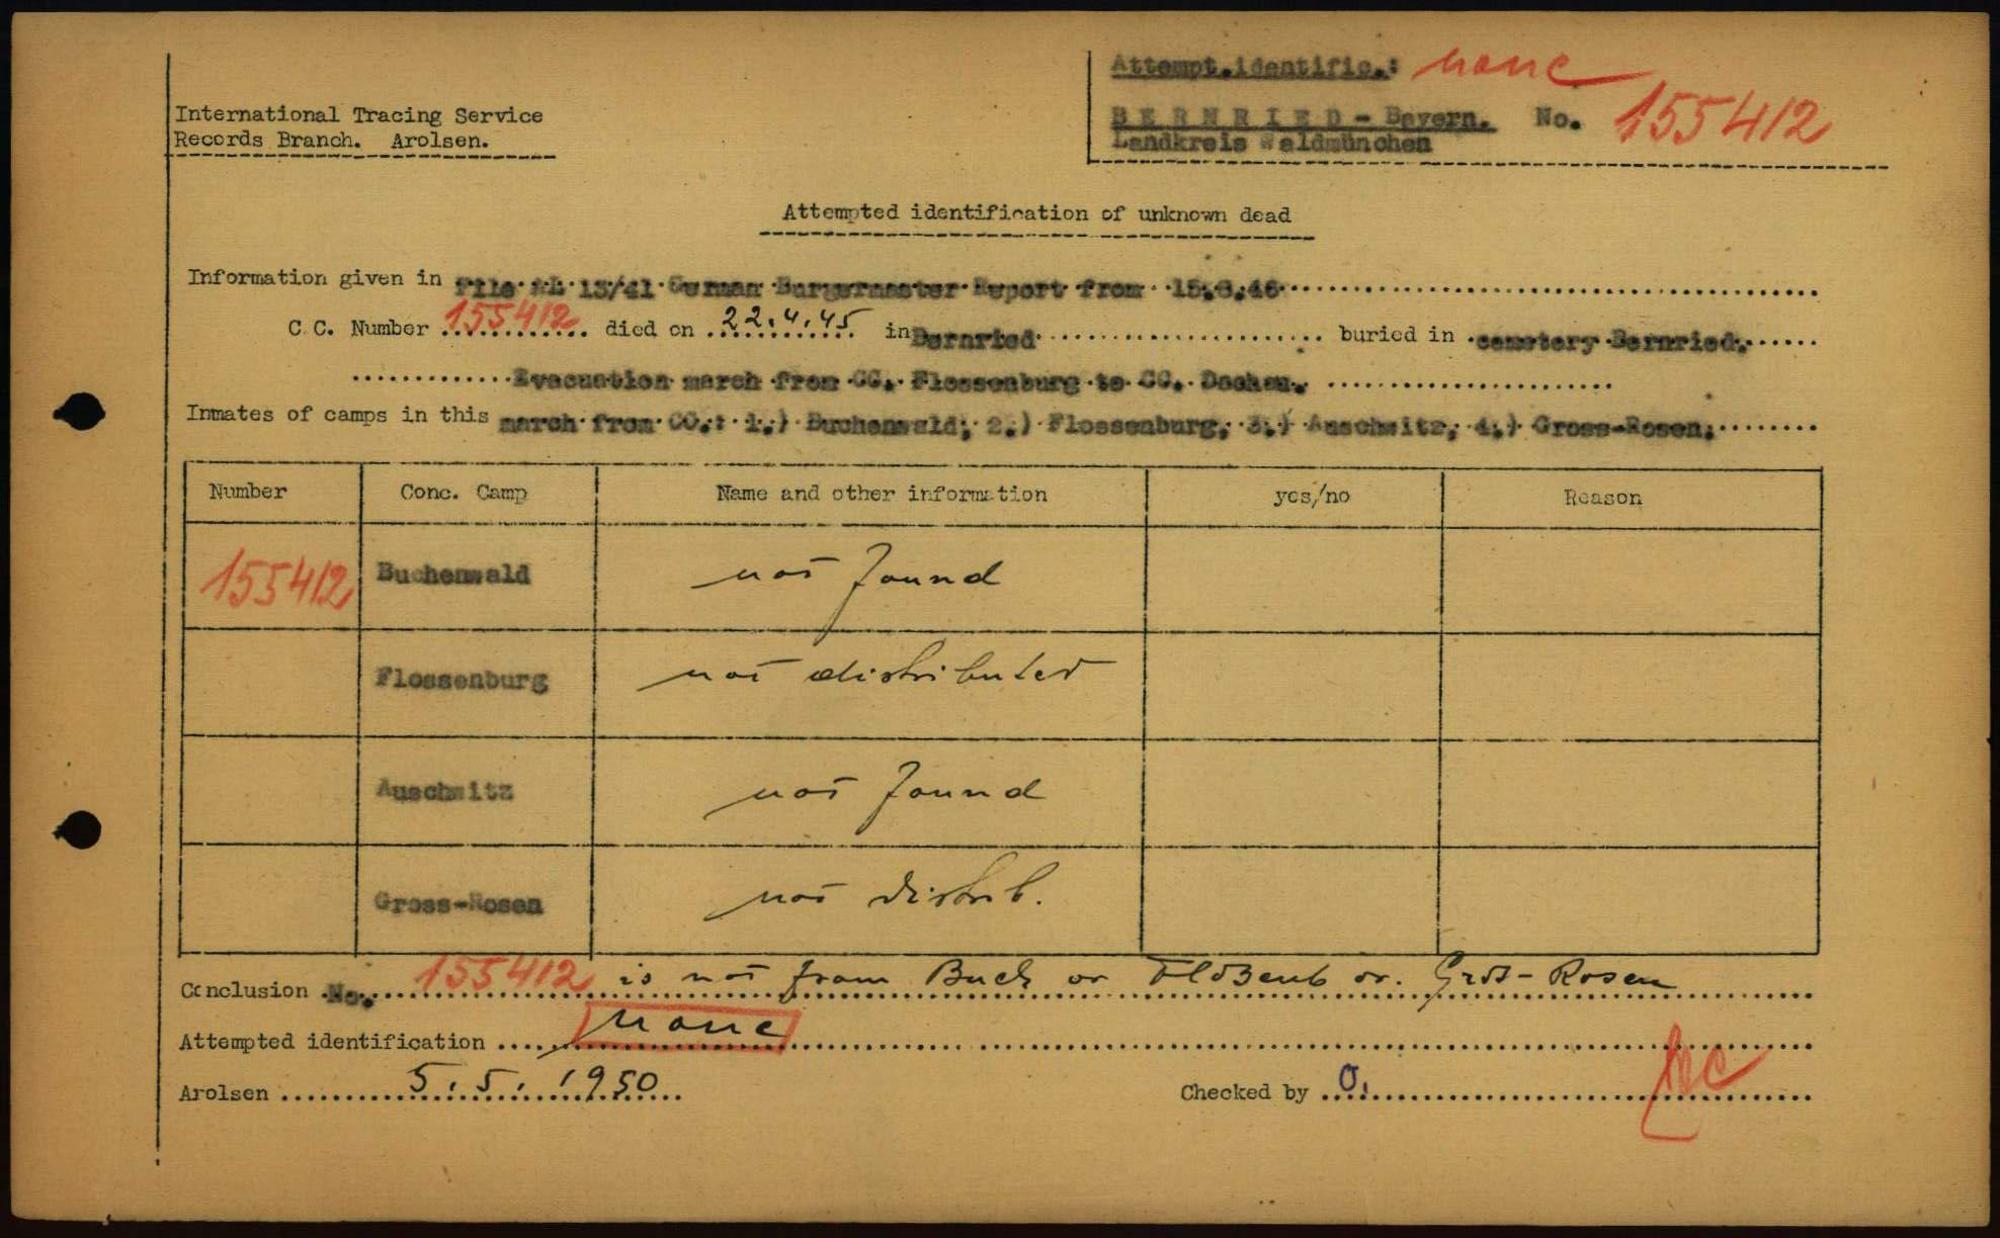 Attempt.identific.: none
International Tracing Service
Records Branch. Arolsen.
BERNRIED - Bayern. No. 155412
Landkreis Waldmünchen
Attempted identification of unknown dead
Information given in File 13/41 German Burgermaster Report from 15.8.46
C.C. Number 155412 died on 22.4.45 in Bernried buried in cemetery Bernried.
Evacuation march from CC. Flossenburg to CC. Dachau.
Inmates of camps in this march from CC.: 1.) Buchenwald; 2.) Flossenburg, 3.) Auschwitz, 4.) Gross-Rosen.
Number Conc. Camp Name and other information yes/no Reason
155412 Buchenwald not found
Flossenburg not distributed
Auschwitz not found
Gross-Rosen not distrib.
Conclusion No. 155412 is not from Buch or Floßenb or. Groß-Rosen
Attempted identification none
Arolsen 5.5.1950 Checked by O.